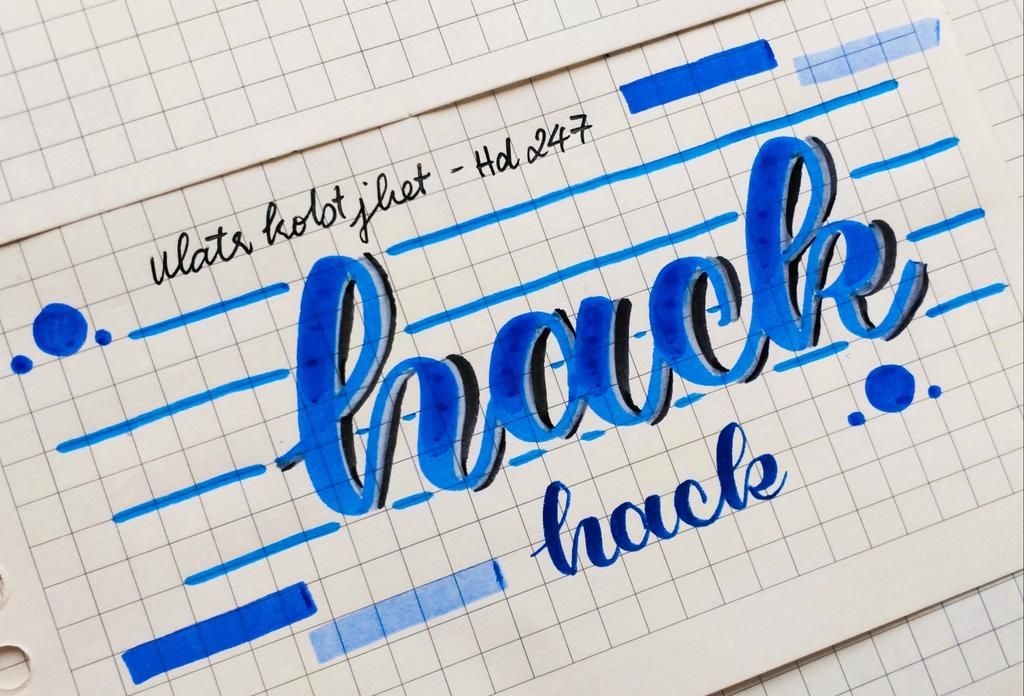 Ulats kolot jhet - Hd 247
hack
hack